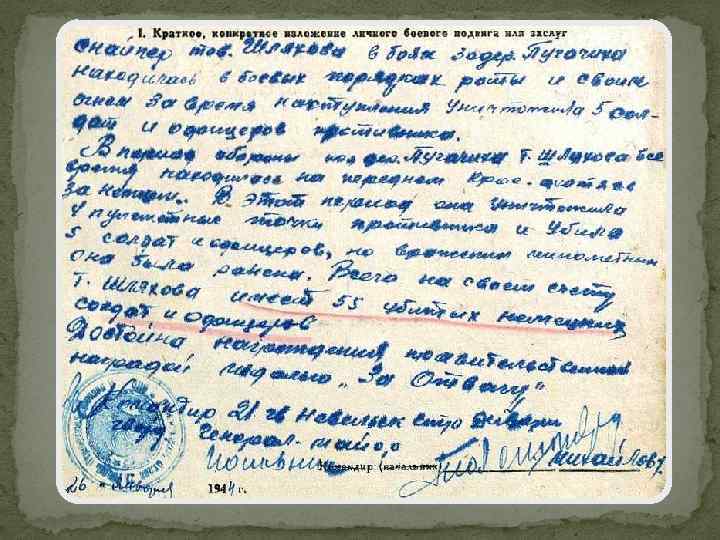 I. Краткое, конкретное изложение личного боевого подвига или заслуг
Снайпер тов. Шляхова в боях за дер. Пугачиха
находилась в боевых порядках роты и своим
огнем за время наступления уничтожила 5 сол-
дат и офицеров противника.
В период обороны под дер. Пугачиха т. Шляхова все
время находилась на переднем крае охотясь
за немцами. В этот период она уничтожила
4 пулеметные точки противника и убила
5 солдат и офицеров, но вражеским минометным
она была ранена. Всего на своем счету
т. Шляхова имеет 55 убитых немецких
солдат и офицеров
Достойна награждения правительственной
наградой медалью "За Отвагу"
Командир 21 гв Невельск стр дивизии
гвард Генерал-майор
Командир (начальник
Михайлову
26 " 1944 г.